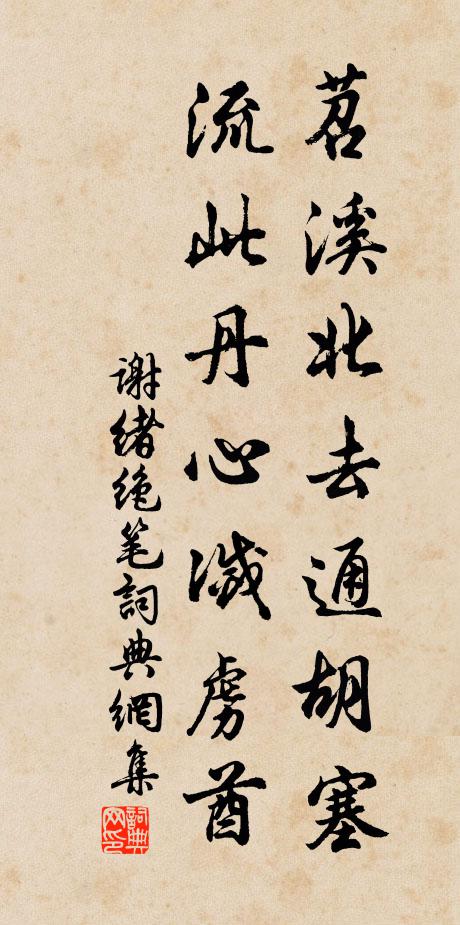 苕溪北去通胡塞
流此丹心滅虜酋
謝緒绝笔詞典網集
詞典网印